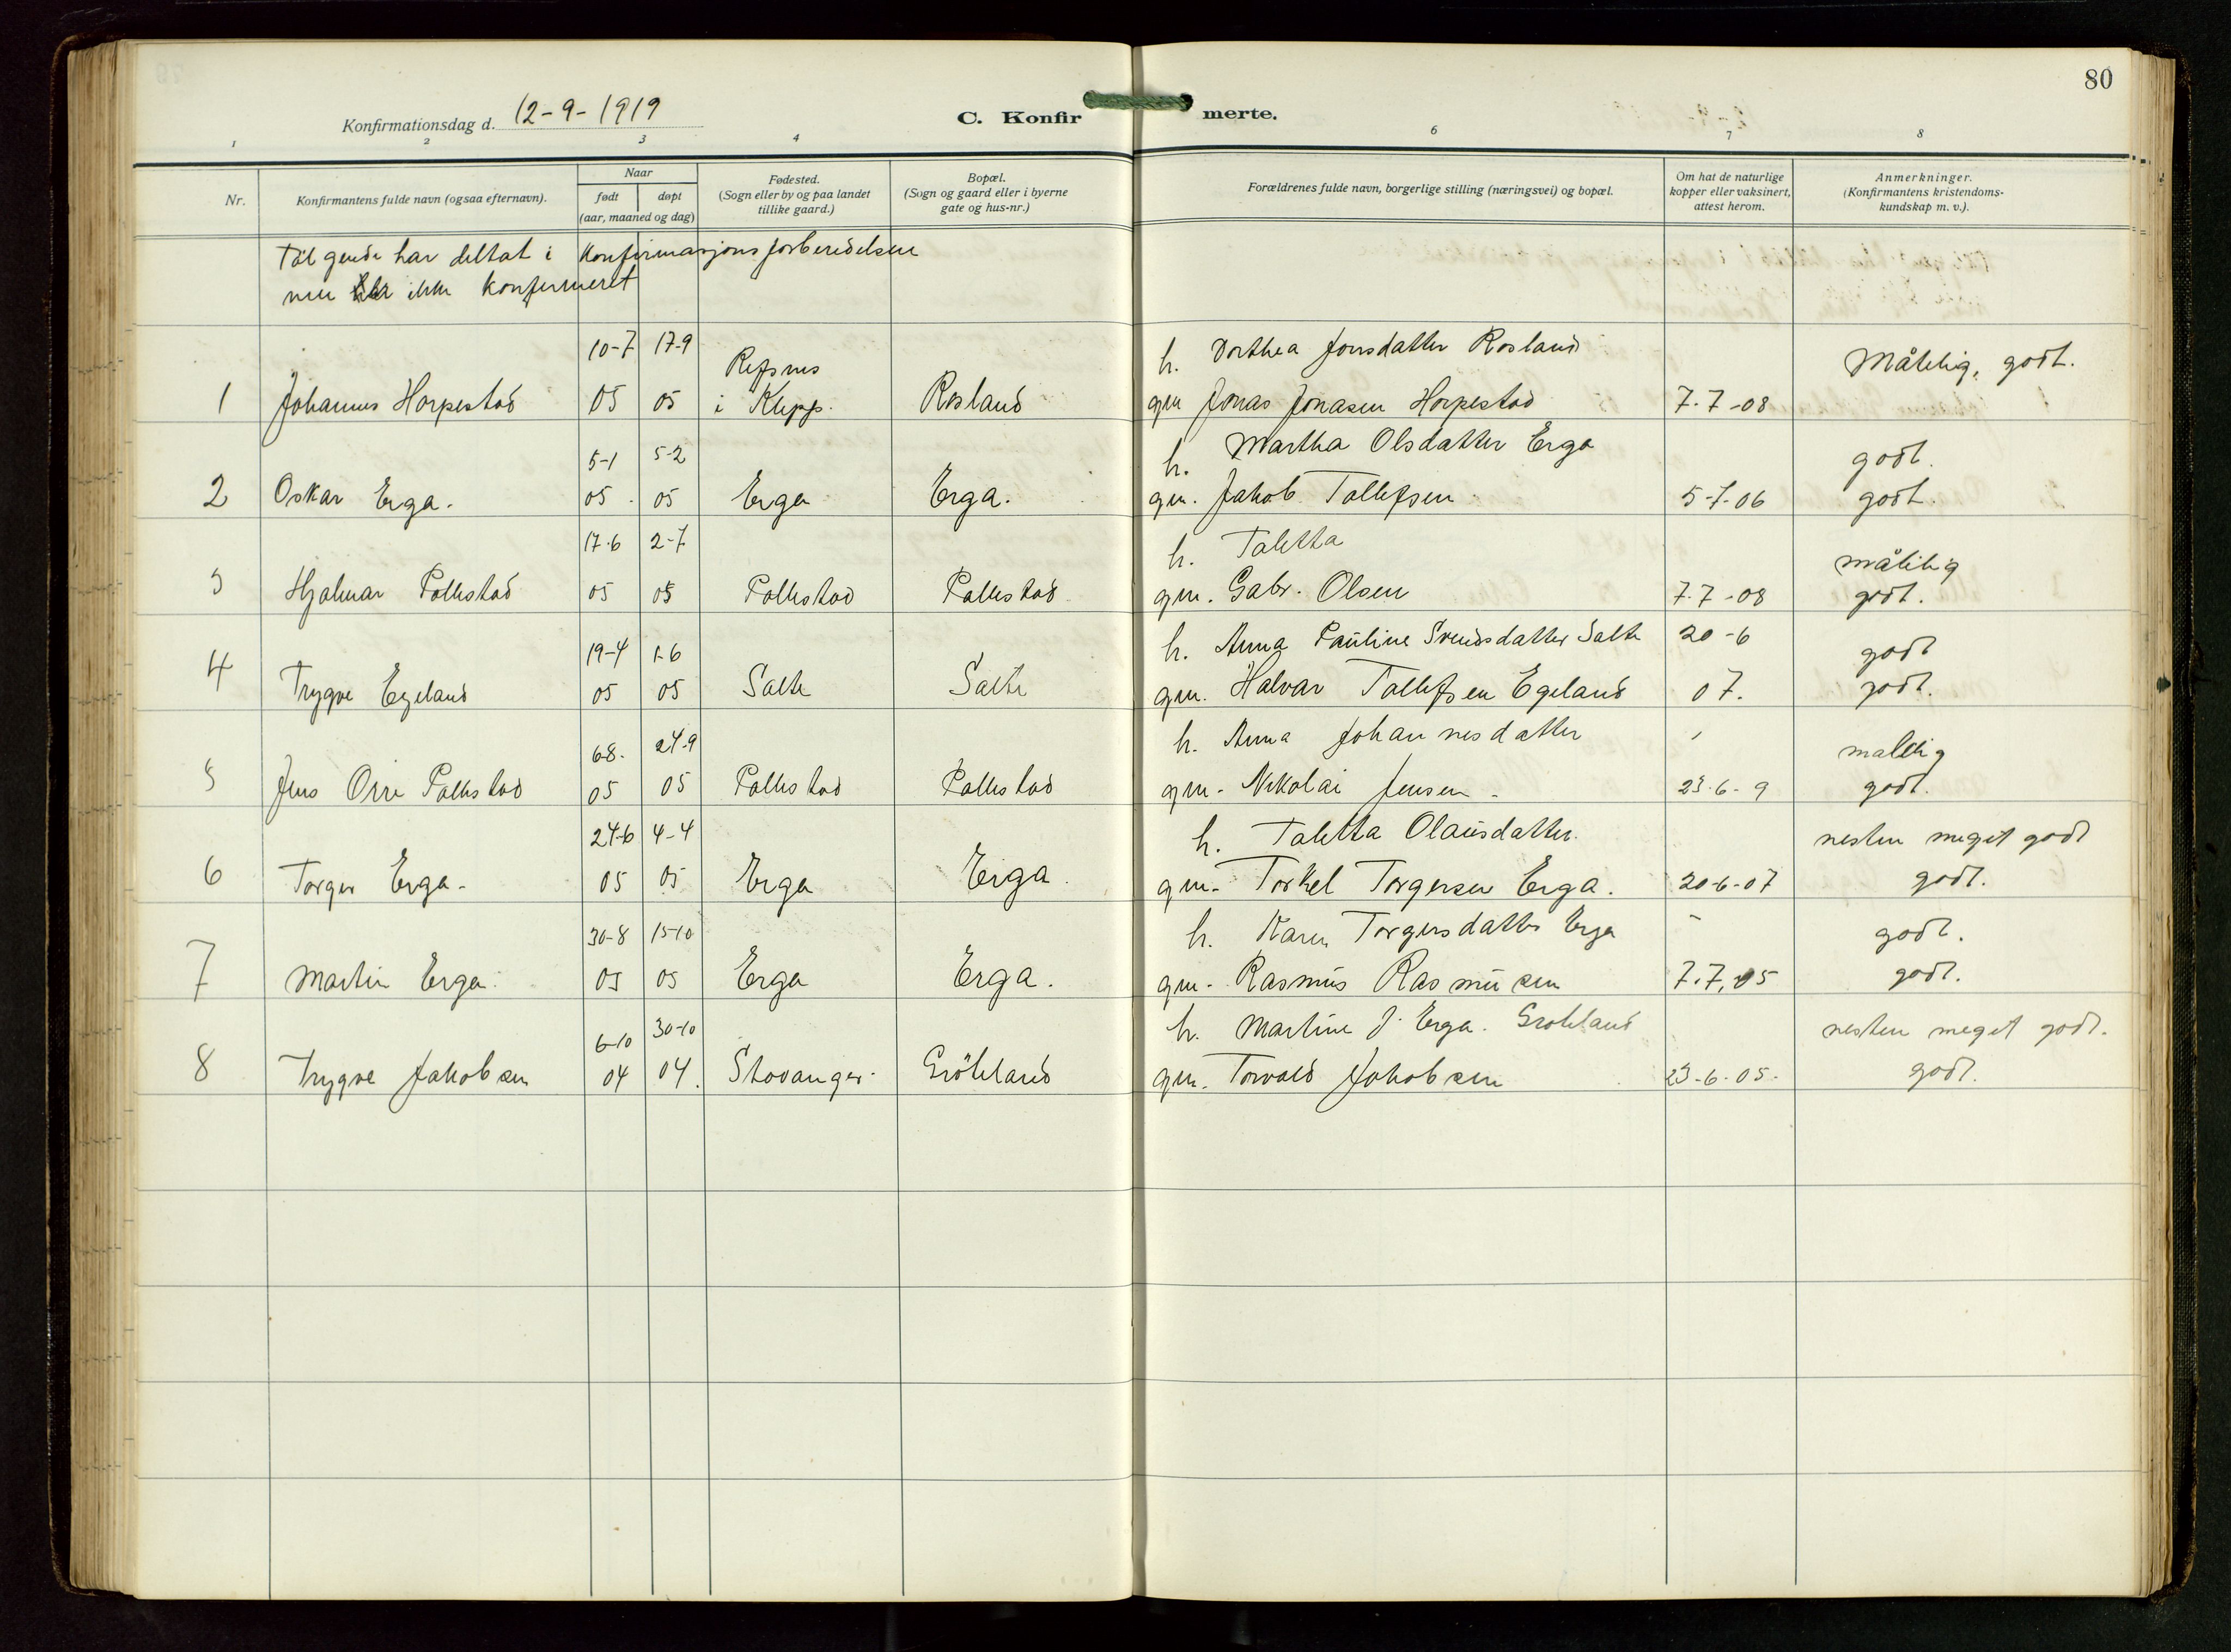 80
Konfirmationsdag d. 12-9-1919
C. Konfirmerte.
1 2 3 4 6 7 8
Nr.
Konfirmantens fulde navn (ogsaa efternavn).
Naar
født døpt
(aar, maaned og dag)
Fødested.
(Sogn eller by og paa landet
tillike gaard.)
Bopæl.
(Sogn og gaard eller i byerne
gate og hus-nr.)
Forældrenes fulde navn, borgerlige stilling (næringsvei) og bopæl.
Om hat de naturlige
kopper eller vaksinert,
attest herom.
Anmerkninger.
(Konfirmantens kristendoms-
kundskap m. v.).
Følgende har deltat i Konfirmasjonsforberedelsen
men ikke konfirmeret
10-7 17-9 Refsnes h. Dorthea Jonsdatter Rosland Måtelig, godt.
1 Johannes Horpestad 05 05 i Klepp. Rosland gm Jonas Jonasen Horpestad 7-7-08
5-1 5-2 h. Martha Olsdatter Erga godt.
2 Oskar Erga. 05 05 Erga Erga. gm. Jakob Tollefsen 5-7-06 godt.
17-6 2-7 h. Taletta måtelig
3 Hjalmar Pollestad 05 05 Pollestad Pollestad gm. Gabr. Olsen 7-7-08 godt.
19-4 1-6 h. Anna Pauline Svendsdatter Salte 20-6 godt
4 Trygve Egeland 05 05 Salte Salte gm. Halvar Tollefsen Egeland 07. godt.
6-8. 24-9 h. Anna Johannesdatter matelig
5 Jens Orre Pollestad 05 05 Pollestad Pollestad gm. Nikolai Jensen - 23-6-9 godt.
24-6 4-4 h. Taletta Olausdatter. nesten meget godt
6 Torger Erga. 05 05 Erga Erga. gm. Torkel Torgersen Erga. 20-6-07 godt.
30-8 15-10 h. Karen Torgersdatter Erga - godt.
7 Martin Erga. 05 05 Erga Erga. gm. Rasmus Rasmusen 7.7.05 godt.
6-10 30-10 h. Martine J. Erga. Grøtland nesten meget godt.
8 Trygve Jakobsen 04 04. Stavanger. gm. Torvald Jakobsen 23-6-05. godt.